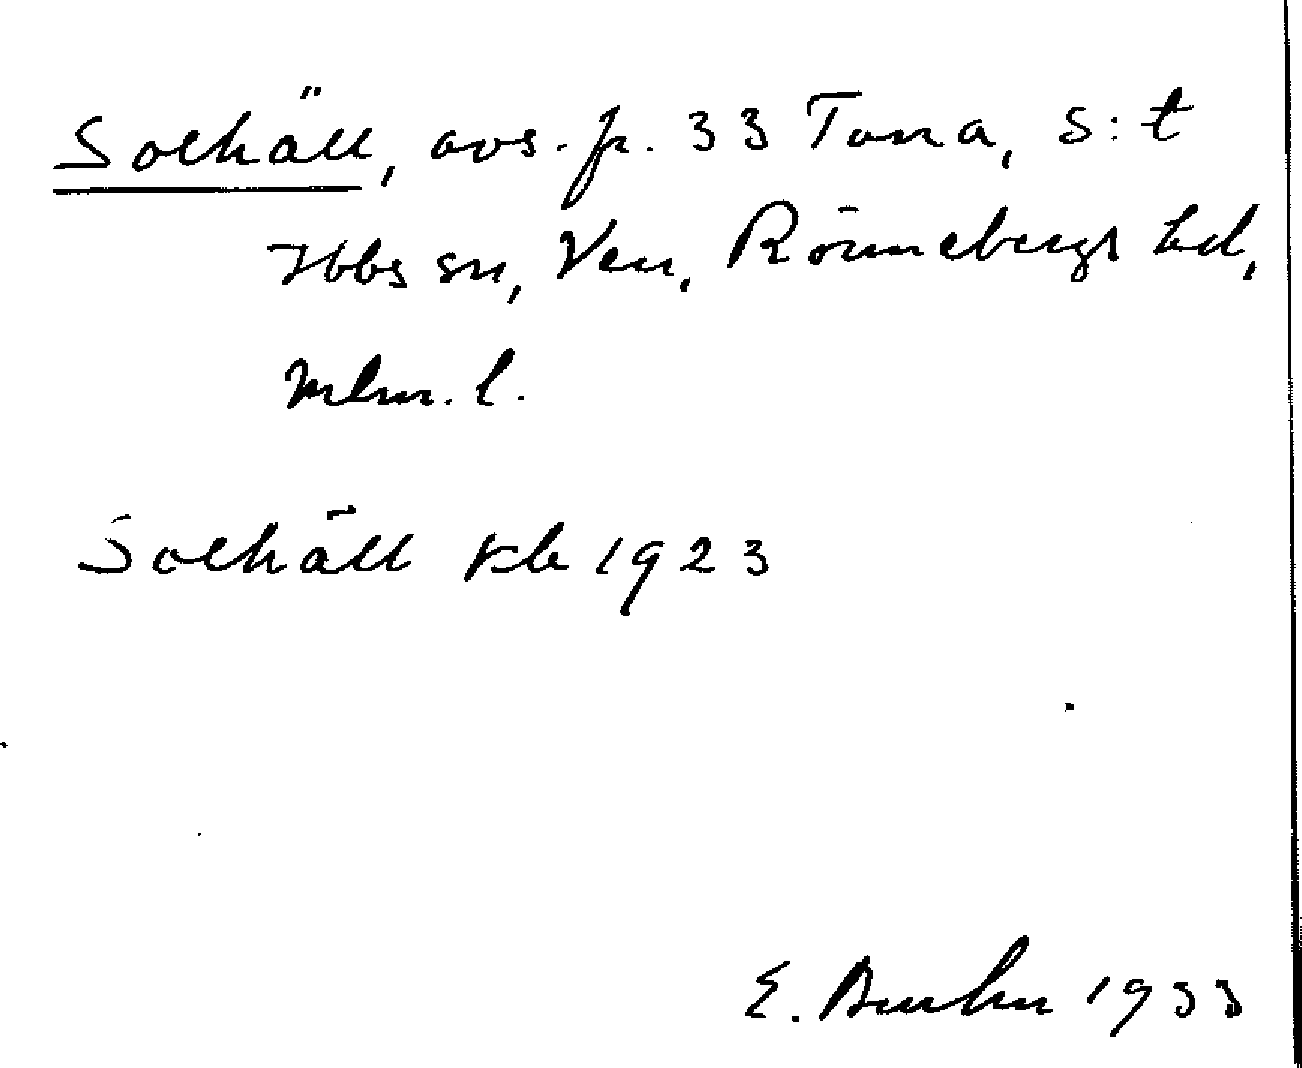 Solhäll, avs. fr. 33 Tuna, S:t
Ibbs sn, Ven, Rönnebergs hd,
Mlm. l.
Solhäll Kb 1923
E. 1933